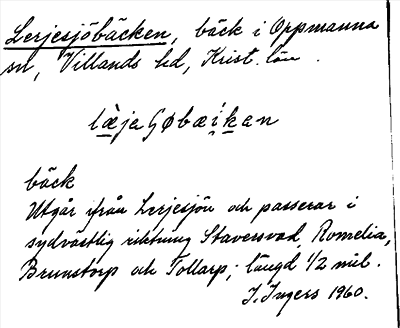 Lerjesjöbäcken, bäck i Oppmanna
sn, Villands hd, Krist. län.
læjaʃøbæikan
bäck
Utgår ifrån Lerjesjön och passerar i
sydvästlig riktning Staversvad, Romelia,
Brunstorp och Tollarp; längd 1/2 mil.
I. Ingers 1960.